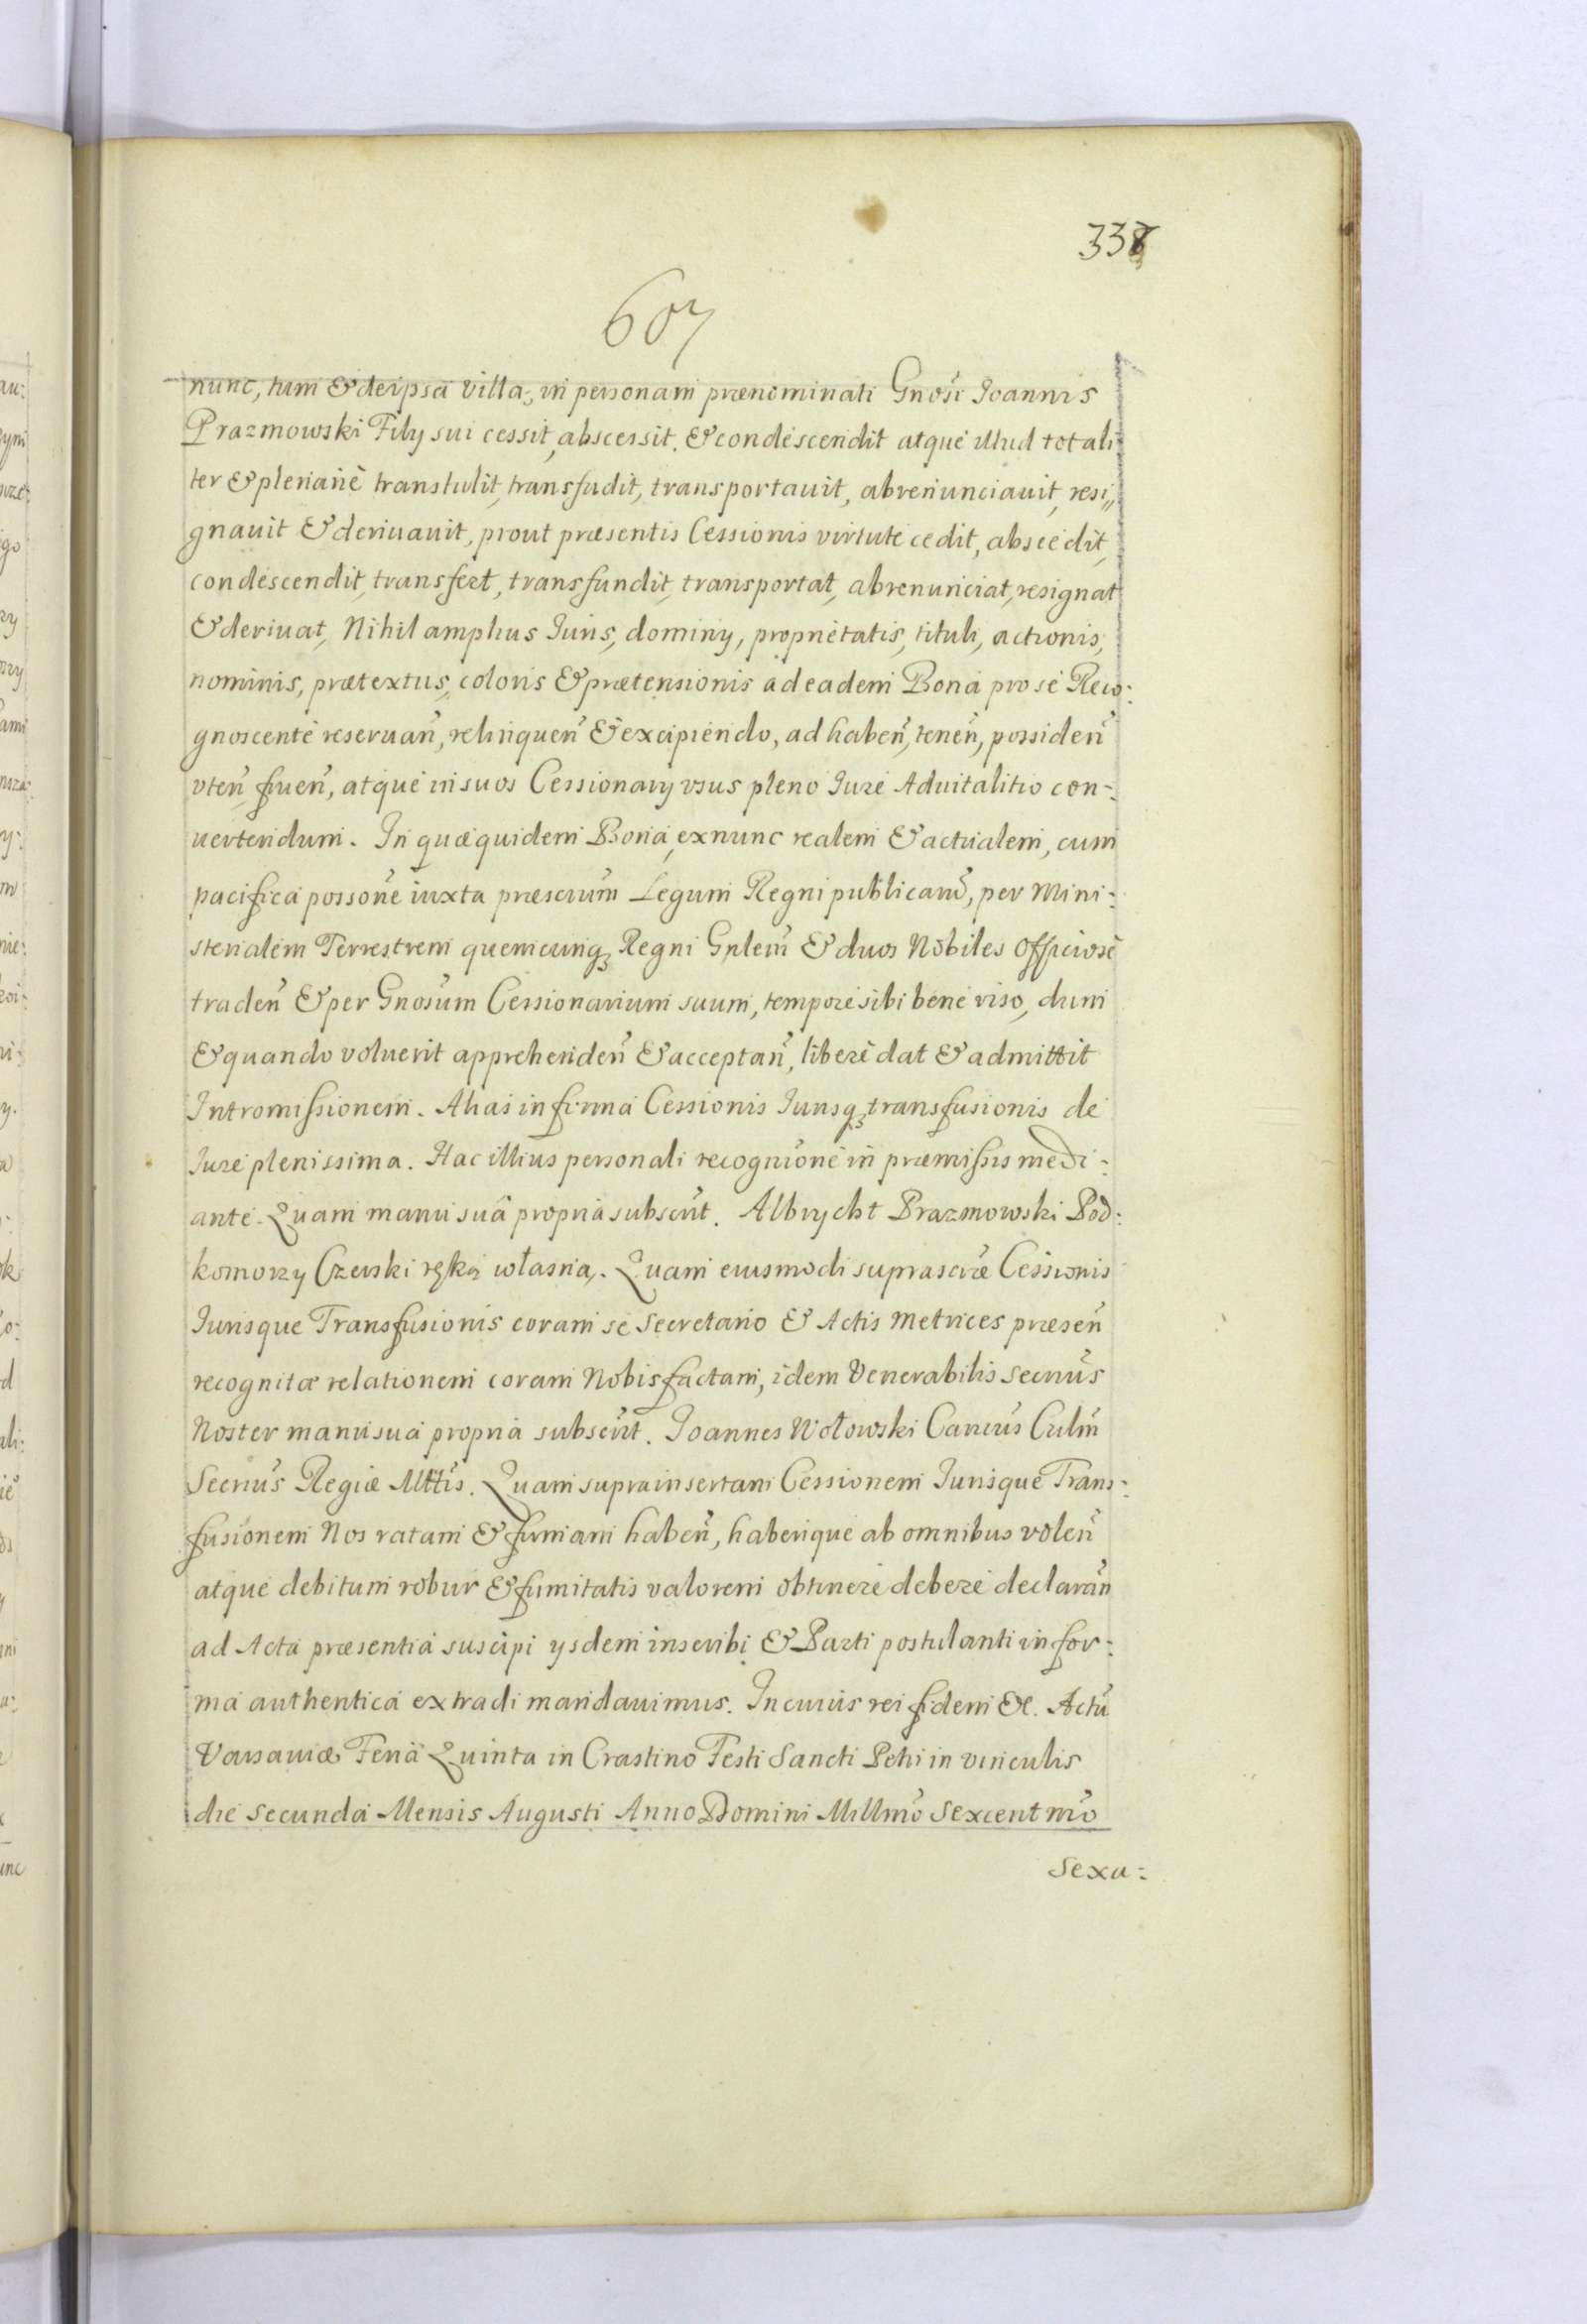 338
607
nunc, tum & de ipsa villa, in personam prænominati Gnosi Ioannis
Prazmowski Filÿ sui cessit, abscessit & condescendit atque illud totali:
ter & plenariè transtulit, transfudit, transportauit, abrenunciauit, resi,,
gnauit & deriuauit, prout præsentis Cessionis virtute cedit, abscedit,
condescendit, transfert, transfundit, transportat, abrenunciat, resignat
& deriuat, Nihil amplius Iuris, dominÿ, proprietatis, tituli, actionis,
nominis, prætextus, coloris & prætensionis ad eadem Bona pro se Reco:
gnoscente reseruañ, relinqueñ & excipiendo, ad habeñ, teneñ, possideñ
vteñ frueñ, atque in suos Cessionarÿ vsus pleno Iure Aduitalitio con-:
uertendum. In quæ quidem Bona, ex nunc realem & actualem, cum
pacifica possoñe iuxta præscrium Legum Regni publicarũ, per Mini:
sterialem Terrestrem quemcunqꝫ Regni Gnlem & duos Nobiles Officiosè
tradeñ & per Gnosum Cessionarium suum, tempore sibi bene viso, dum
& quando voluerit apprehendeñ & acceptañ, liberè dat & admittit
Intromissionem. Alias in firma Cessionis Iurisqꝫ transfusionis de
Iure plenissima. Hac illius personali recognione in præmissis medi:
ante. Quam manu suâ propria subscrit. Albrycht Prazmowski Pod:
komorzy Czerski ręką własną. Quam eiusmodi suprascræ Cessionis
Iurisque Transfusionis coram se Secretario & Actis Metrices præseñ
recognitæ relationem coram Nobis factam, idem Venerabilis Secrius
Noster manu sua propria subscrit. Ioannes Wołowski Cancus Culm
Secrius Regiæ Mttis. Quam suprainsertam Cessionem Iurisque Trans:
fusionem Nos ratam & firmam habeñ, haberique ab omnibus voleñ
atque debitum robur & firmitatis valorem obtinere debere declarañ
ad Acta præsentia suscipi ÿsdem inscribi & Parti postulanti in for:
ma authentica extradi mandauimus. In cuius rei fidem &c. Actũ
Varsauiæ Feria Quinta in Crastino Festi Sancti Petri in vinculis
die secunda Mensis Augusti Anno Domini Millmo Sexcentmo
Sexa: